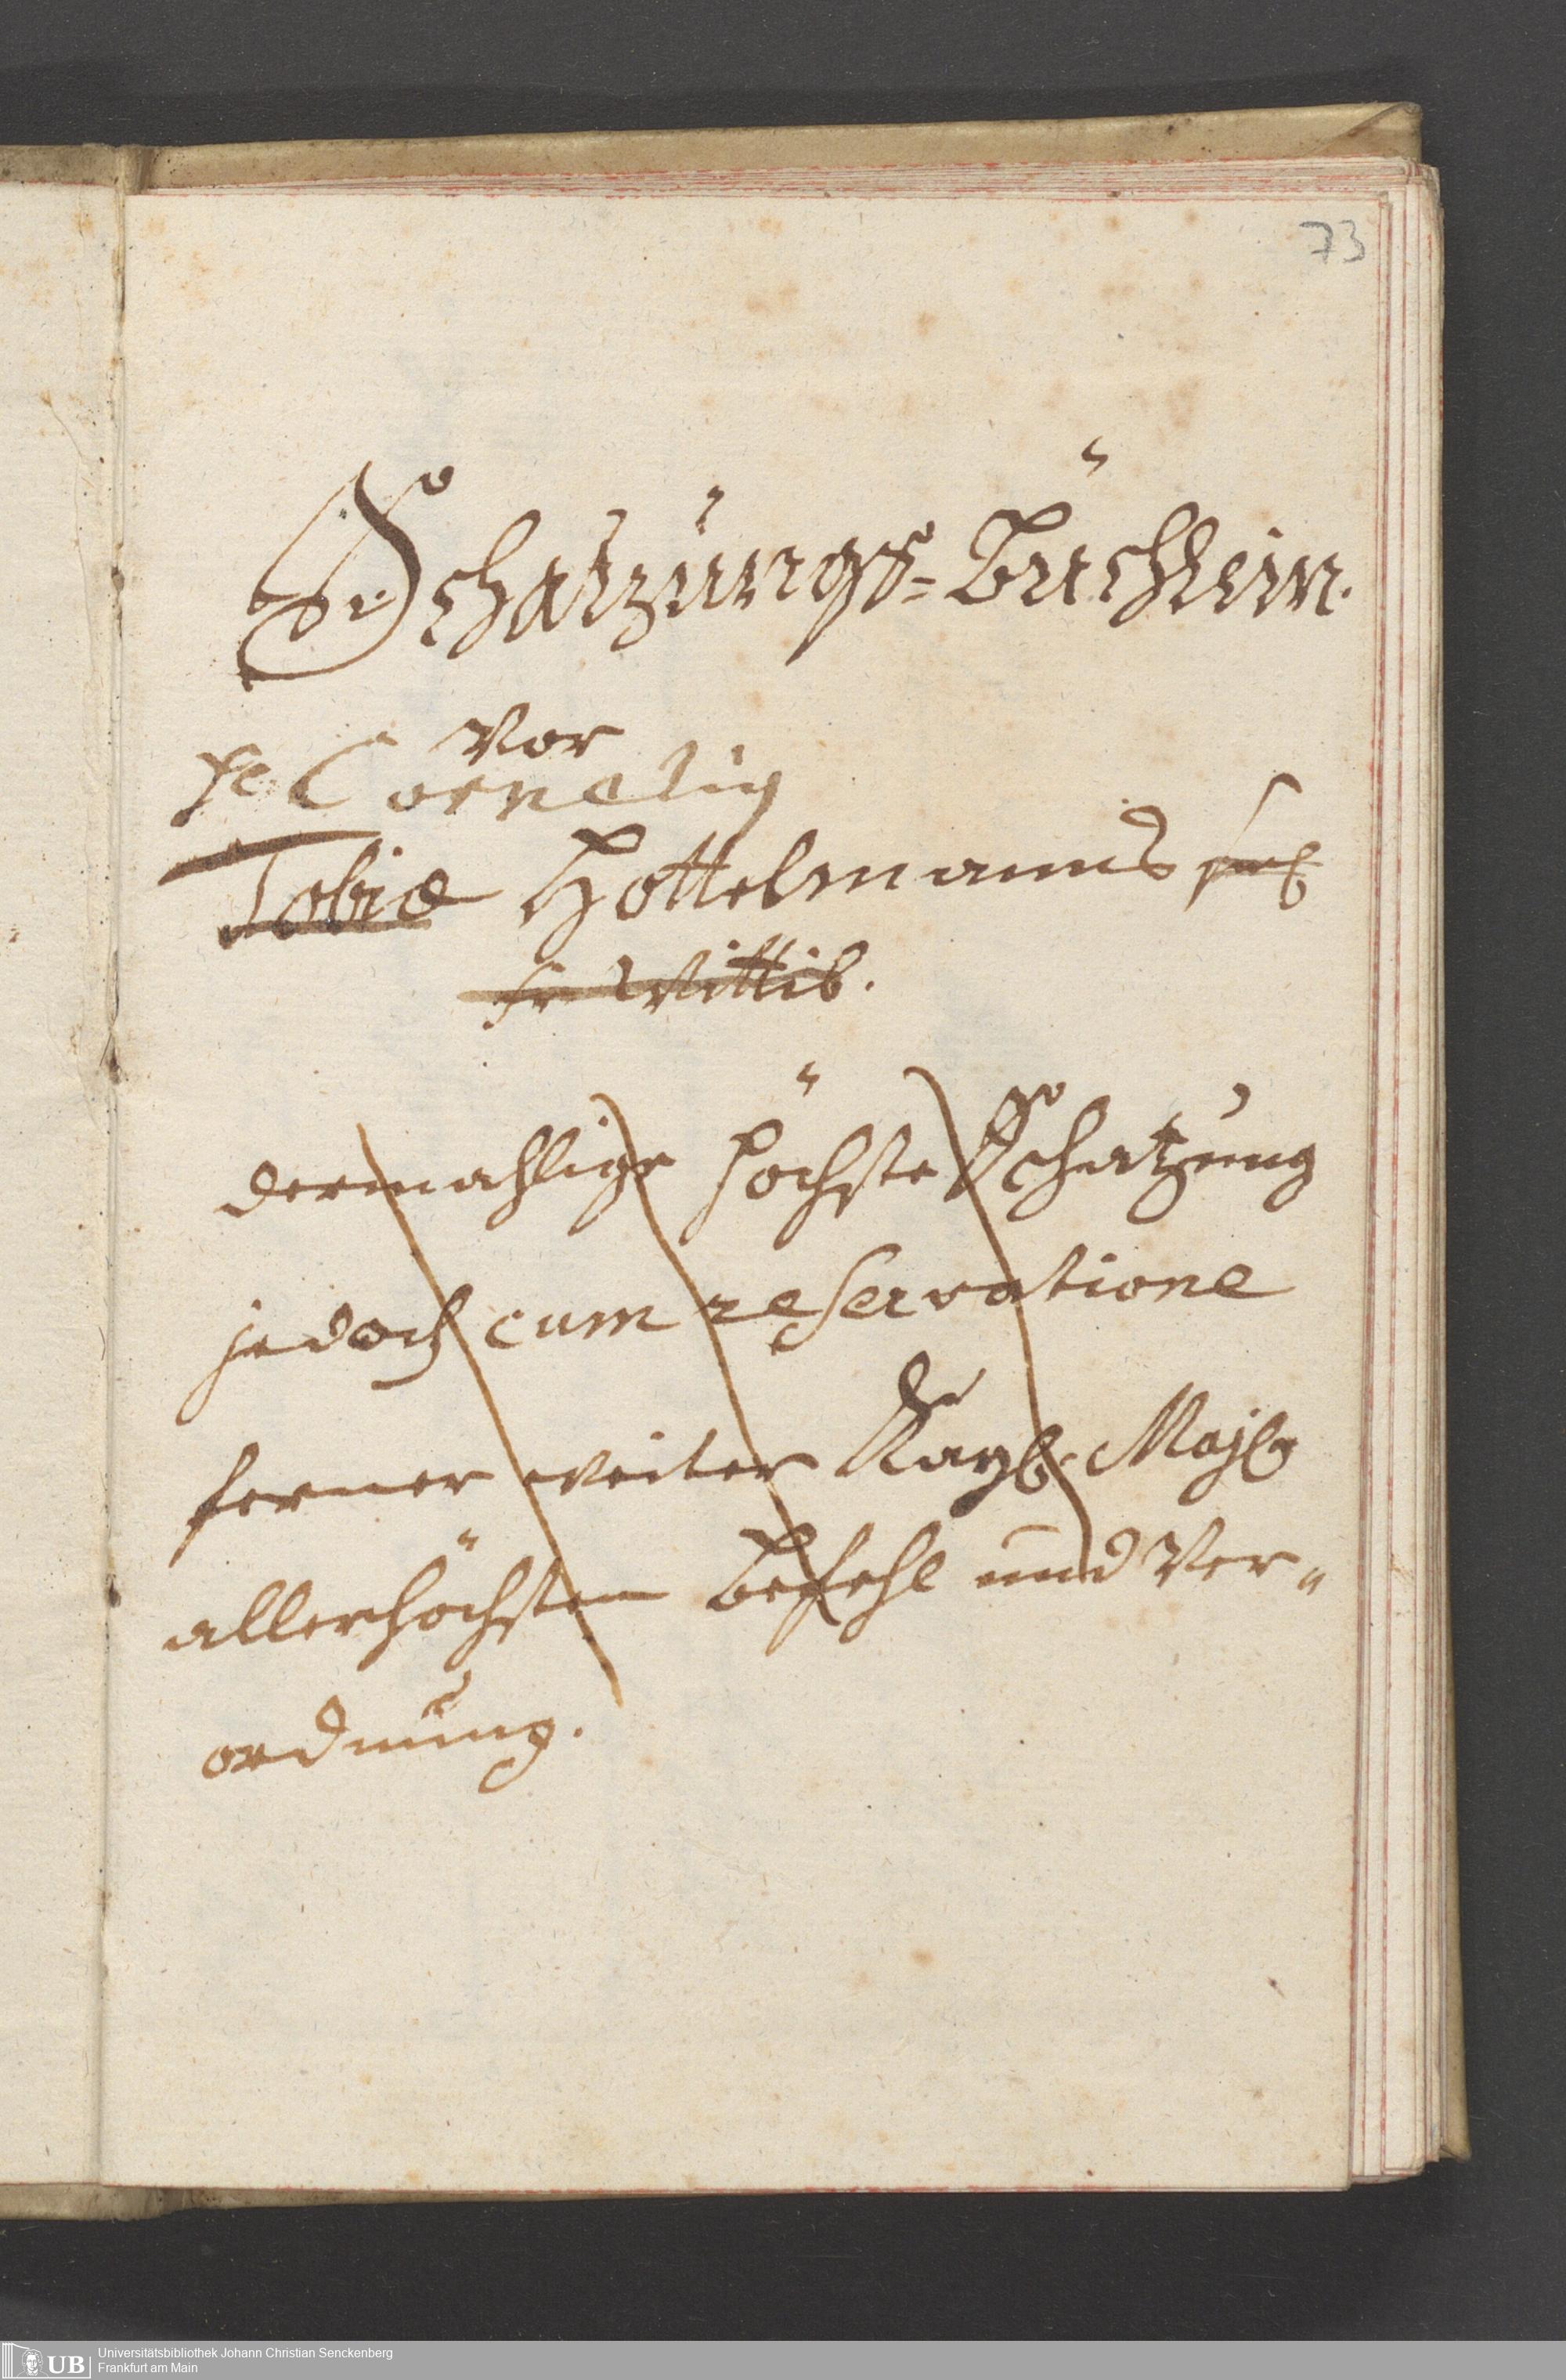 73
Schatzungs-Büchlein.
Vor
Hl Cornelig
Tobiæ Hottelmanns sel
fr Wittib.
dermahlige höchste Schatzung
jedoch cum reservatione
ferner weiter Kayl. Majl
allerhöchsten Befehl und Ver„
ordnung.
UB Universitätsbibliothek Johann Christian Senckenberg
Frankfurt am Main